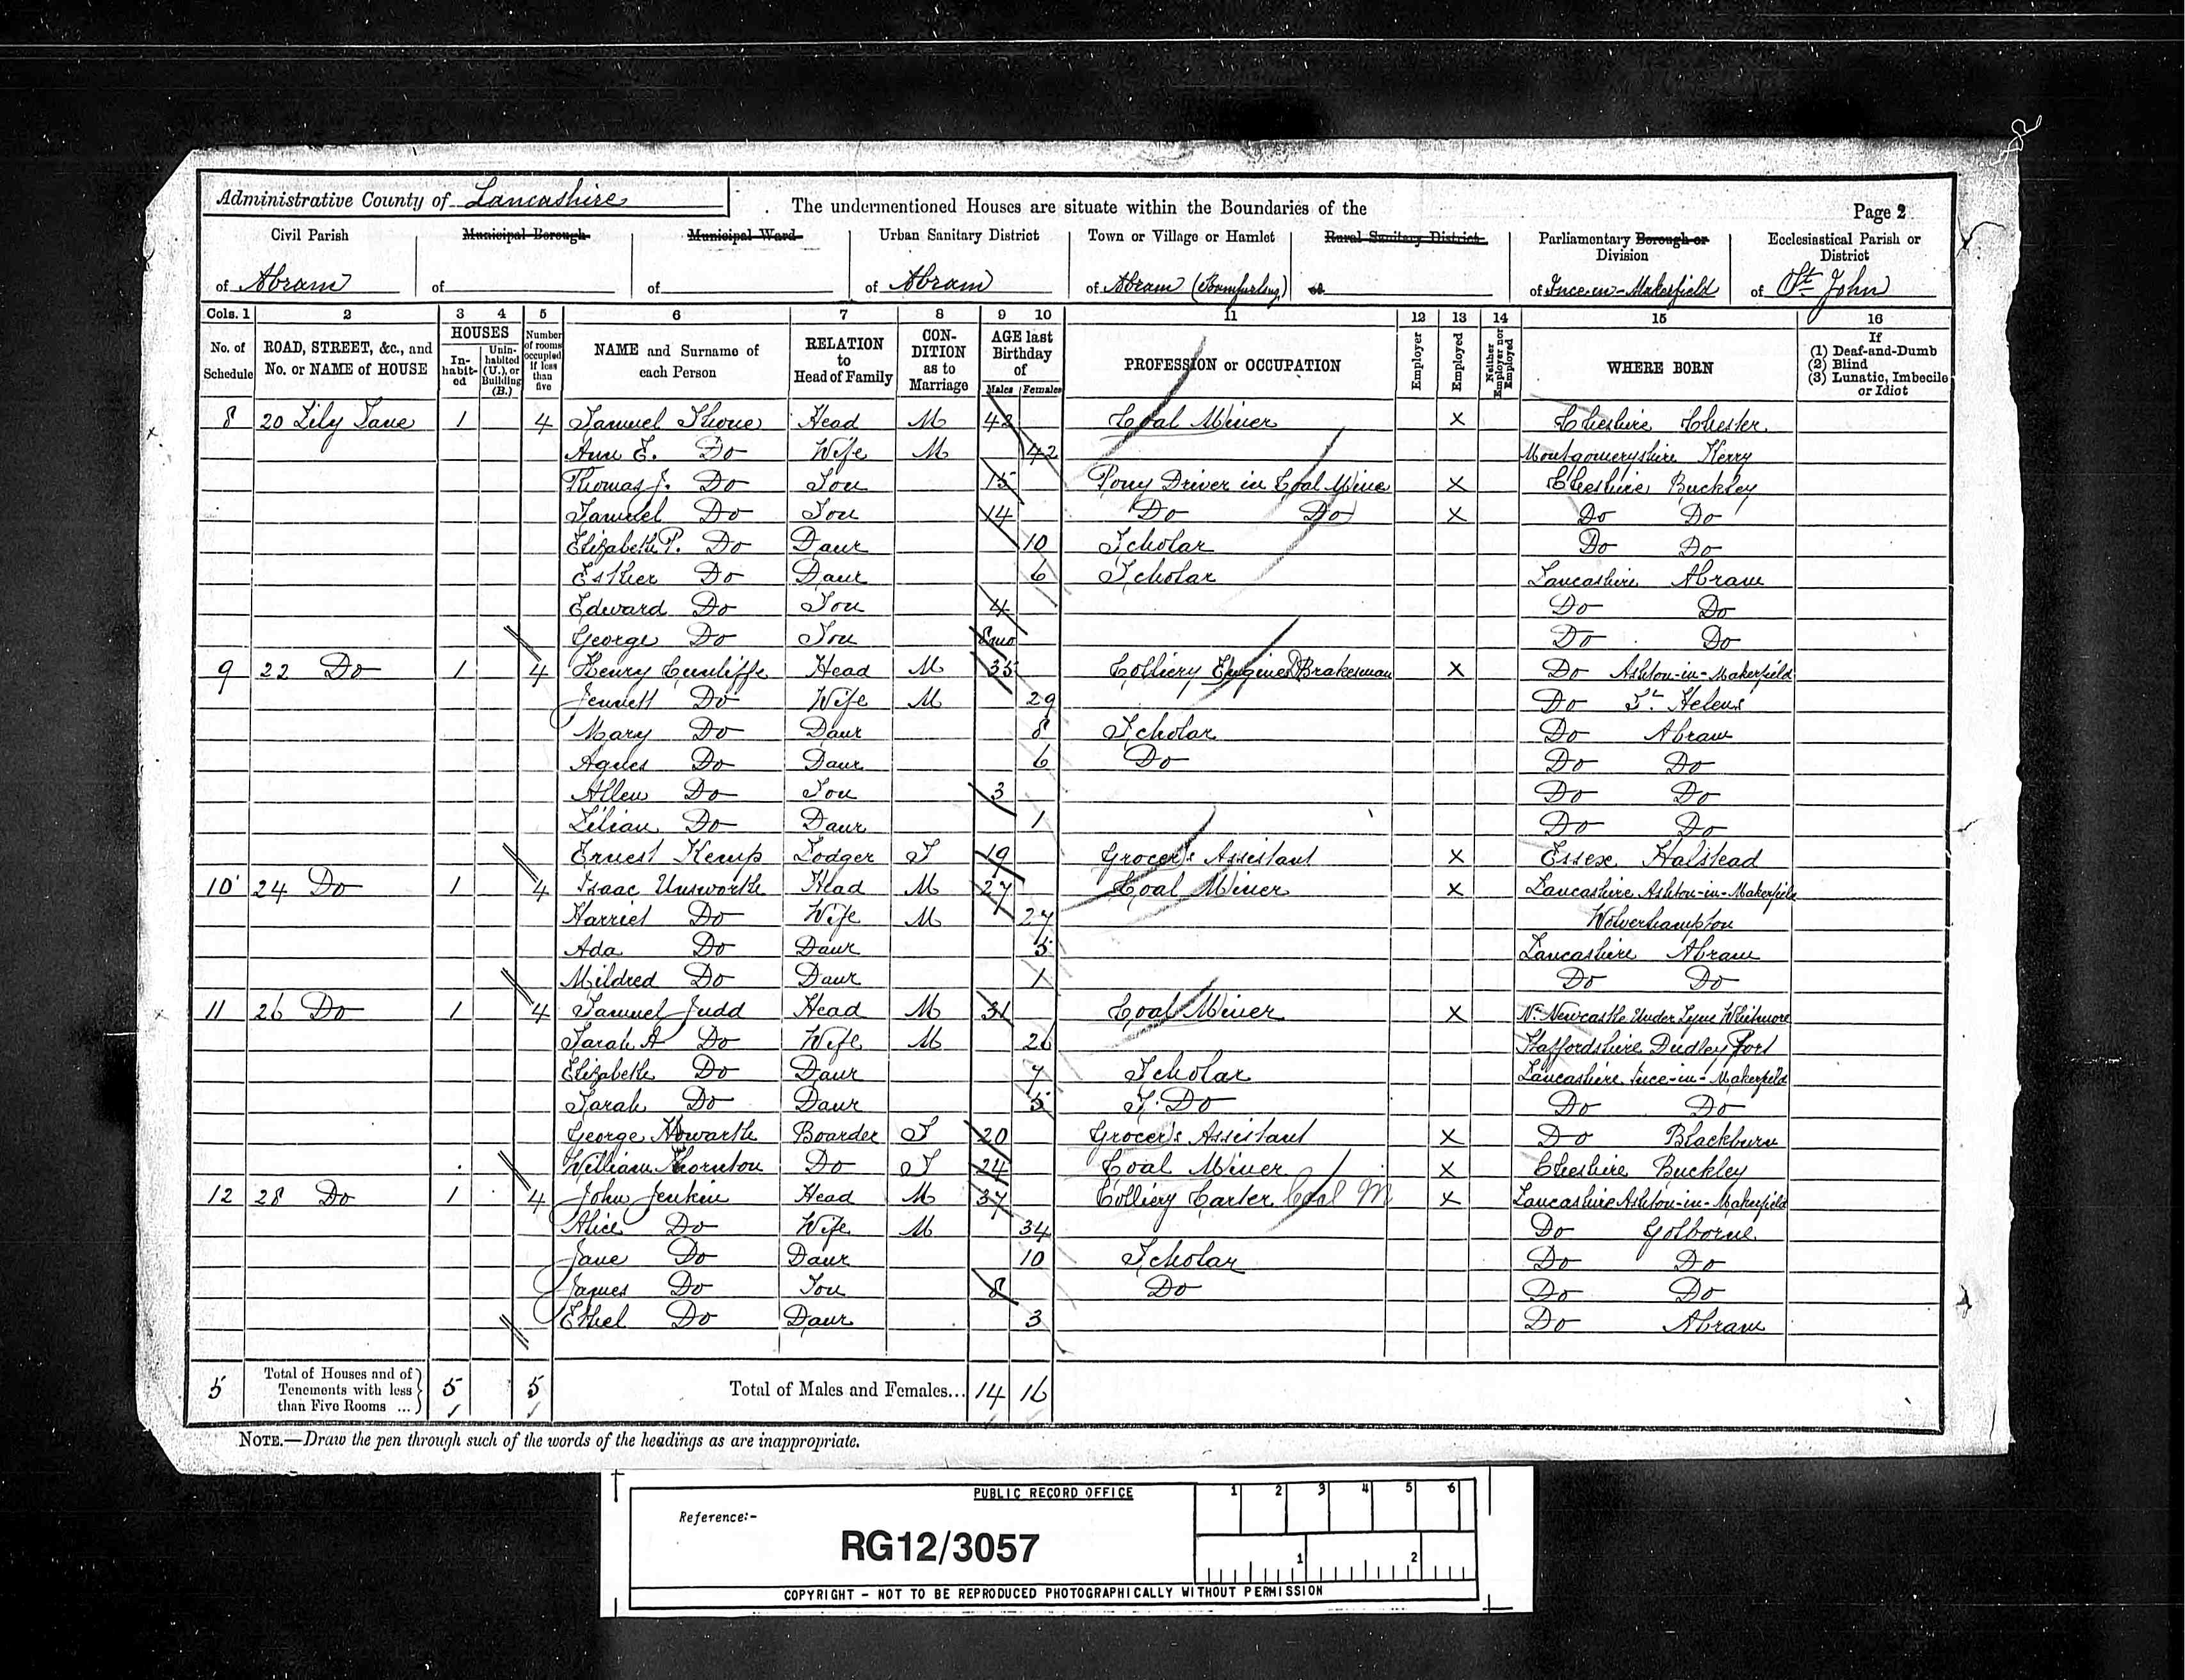 Administrative County of Lancashire
The undermentioned Houses are situate within the Boundaries of the
Page 2
Civil Parish of Abram
Municipal Borough of
Municipal Ward of
Urban Sanitary District of Abram
Town or Village or Hamlet of Abram
Rural Sanitary District of
Parliamentary Borough or Division of Ince-in-Makerfield
Ecclesiastical Parish or District of St John
Cols. 1 2 3 4 5 6 7 8 9 10 11 12 13 14 15 16
No. of Schedule
ROAD, STREET, &c., and No. or NAME of HOUSE
HOUSES
In-habit-ed
Unin-habited (U.), or Building (B.)
Number of rooms occupied if less than five
NAME and Surname of each Person
RELATION to Head of Family
CON-DITION as to Marriage
AGE last Birthday of
Males Females
PROFESSION or OCCUPATION
Employer
Employed
Neither Employer nor Employed
WHERE BORN
If (1) Deaf-and-Dumb (2) Blind (3) Lunatic, Imbecile or Idiot
8 20 Lily Lane 1 4 Samuel Head M 42 Coal Miner X Cheshire Chester
Ann E. Do Wife M 42 Montgomeryshire Kerry
Thomas J. Do Son 15 Pony Driver in Coal Mine X Cheshire Buckley
Samuel Do Son 14 Do Do X Do Do
Elizabeth P. Do Daur 10 Scholar Do Do
Esther Do Daur 6 Scholar Lancashire Abram
Edward Do Son 4 Do Do
George Do Son 8mo Do Do
9 22 Do 1 4 Henry Cunliffe Head M 35 Colliery Engine Brakesman X Do Ashton-in-Makerfield
Jennett Do Wife M 29 Do St. Helens
Mary Do Daur 8 Scholar Do Abram
Agnes Do Daur 6 Do Do Do
Allen Do Son 3 Do Do
Lilian Do Daur 1 Do Do
Ernest Kemp Lodger S 19 Grocer's Assistant X Essex Halstead
10 24 Do 1 4 Isaac Unsworth Head M 27 Coal Miner X Lancashire Ashton-in-Makerfield
Harriet Do Wife M 27 Wolverhampton
Ada Do Daur 5 Lancashire Abram
Mildred Do Daur 1 Do Do
11 26 Do 1 4 Samuel Judd Head M 31 Coal Miner X Nr. Newcastle Under Lyne Whitmore
Sarah A Do Wife M 26 Staffordshire Dudley Port
Elizabeth Do Daur 7 Scholar Lancashire Ince-in-Makerfield
Sarah Do Daur 5 Do Do Do
George Howarth Boarder S 20 Grocer's Assistant X Do Blackburn
William Thornton Do S 24 Coal Miner X Cheshire Buckley
12 28 Do 1 4 John Jenkin Head M 37 Colliery Carter Coal M X Lancashire Ashton-in-Makerfield
Alice Do Wife M 34 Do Golborne
Jane Do Daur 10 Scholar Do Do
James Do Son 8 Do Do Do
Ethel Do Daur 3 Do Abram
5 Total of Houses and of Tenements with less than Five Rooms ... 5 5 Total of Males and Females... 14 16
NOTE.—Draw the pen through such of the words of the headings as are inappropriate.
PUBLIC RECORD OFFICE
1 2 3 4 5 6
Reference:-
RG12/3057
1 2
COPYRIGHT - NOT TO BE REPRODUCED PHOTOGRAPHICALLY WITHOUT PERMISSION